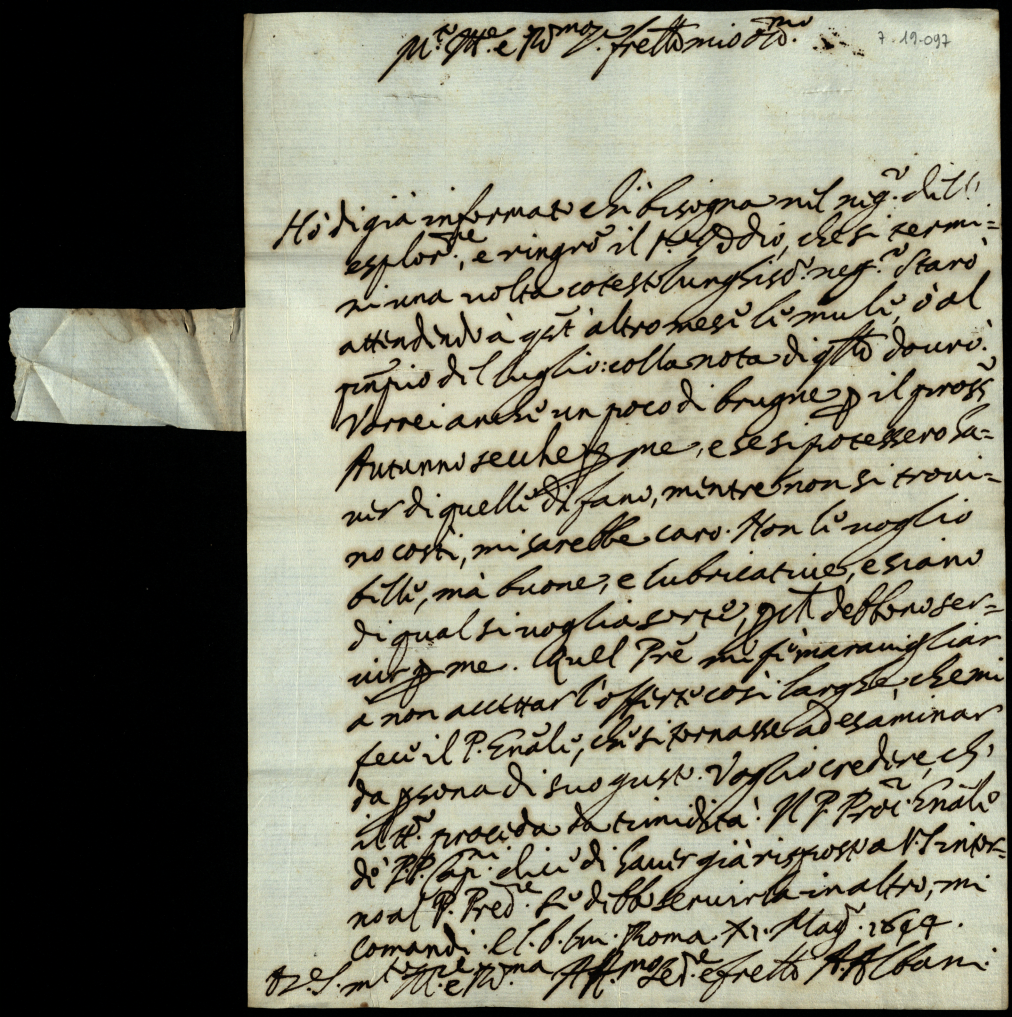 M.to Ill.re e R.mo S.r frello mio oss.mo
7-19-097
Hò di già informato chi bisogna nel neg.o dell'
esplor.re, e ringrõ il S.re Iddio, che si termi=
ni una volta cotesto lunghiss.o neg.o Starò
attendendo à q̃st' altro mese le mule, ò al
prñpio del luglio: colla nota di q̃llo dourò.
Vorrei anche un poco di brugne p il pross.o
Autunno secche p me, e se si potessero ha=
ver di quelle di fano, mentre non si trovi=
no costì, mi sarebbe caro. Non le voglio
belle, mà buone, e lubricative, e siano
di qual si voglia sorte, debbono ser=
vir p me. Quel Prẽ mi fè maravigliar
à non accettar l'offerte così larghe, che mi
fece il P. Gñale, che si tornasse ad esaminar
da psona di suo gusto. Voglio credere, ch'
il tt.o proceda da timidità. Il P. Proc. Gñale
de' P.P. Capñi dice di haver già risposto a V.S. intor=
no al P. Pred.re Se debbo servirla in altro, mi
comandi. e l. b. l. m. Roma. XI. Mag.o 1694.
Di V.S. m.to Ill.re e R.ma Aff.mo Se.re e frello A. Albani